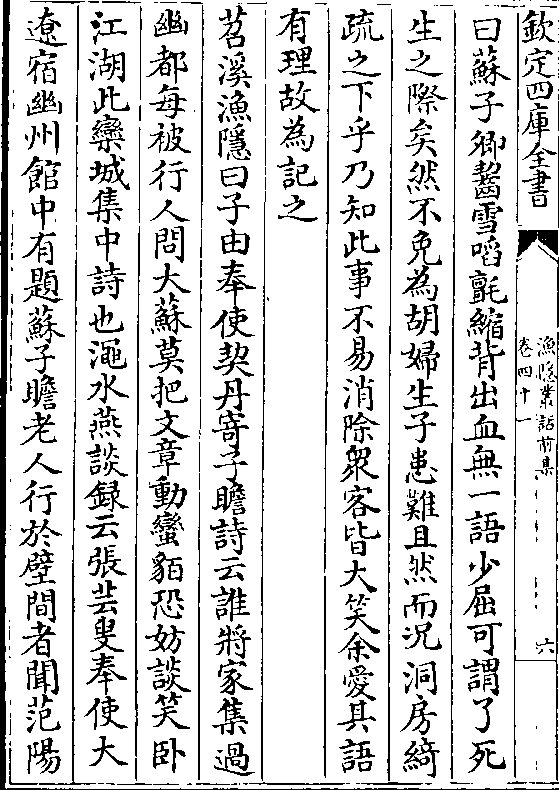 欽定四庫全書
漁隱叢話前集
卷四十一
六
曰蘇子卿齧雪啗氈縮背出血無一語少屈可謂了死
生之際矣然不免為胡婦生子患難且然而況洞房綺
疏之下乎乃知此事不易消除衆客皆大笑余愛其語
有理故為記之
苕溪漁隱曰子由奉使契丹寄子瞻詩云誰將家集過
幽都每被行人問大蘇莫把文章動蠻貊恐妨談笑卧
江湖此欒城集中詩也澠水燕談録云張芸叟奉使大
遼宿幽州館中有題蘇子瞻老人行於壁間者聞范陽